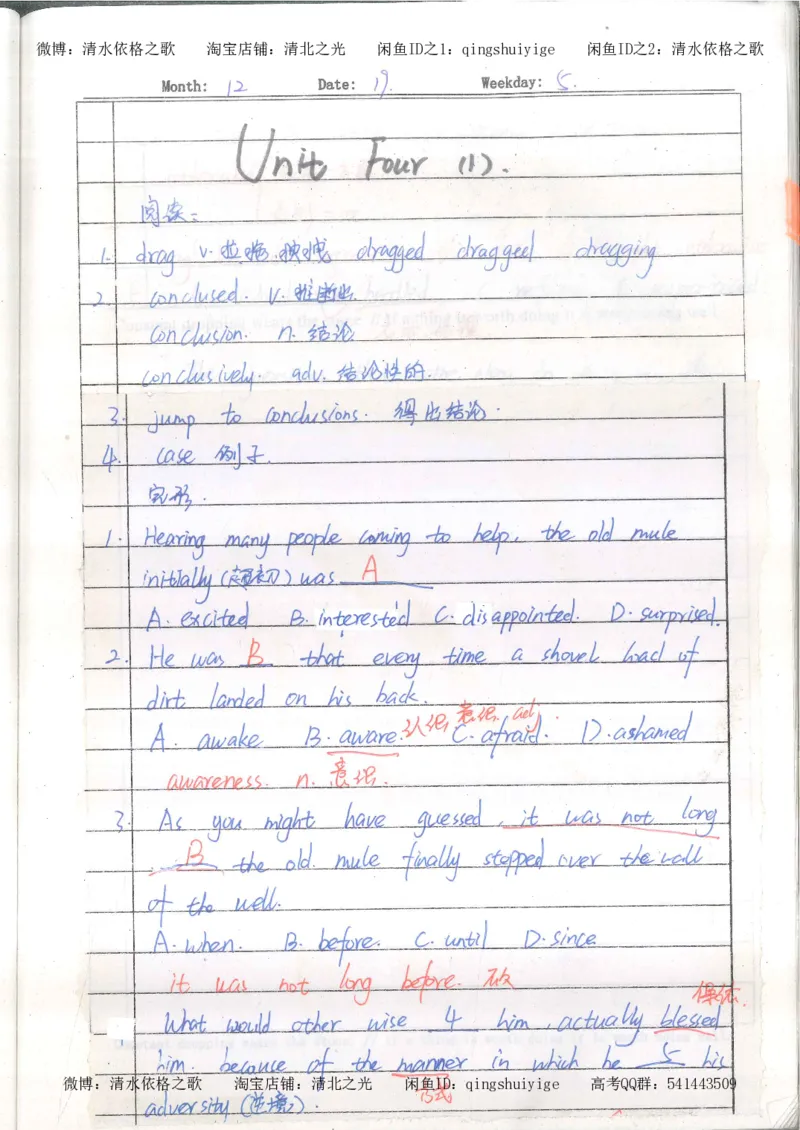 微博：清水依格之歌 淘宝店铺：清北之光 闲鱼ID之1：qingshuiyige 闲鱼ID之2：清水依格之歌
Month: 12 Date: 19. Weekday: 5.
Unit Four (1).
阅读：
1. drag v. 拉拖. dragged dragged dragging
2. conclused. v. 推断出.
conclusion. n. 结论
conclusively. adv. 结论性的.
3. jump to conclusions. 得出结论.
4. case 例子.
完形.
1. Hearing many people coming to help, the old mule
initially (起初) was A
A. excited B. interested C. disappointed. D. surprised.
2. He was B that every time a shovel load of
dirt landed on his back.
A. awake B. aware. 认识, 意识, adj. C. afraid. D. ashamed
awareness. n. 意识.
3. As you might have guessed, it was not long
B the old mule finally stepped over the wall
of the well.
A. when. B. before. C. until D. since
it was not long before. 固
What would other wise 4 him, actually blessed
him. because of the manner in which he 5 his
方式
adversity (逆境).
微博：清水依格之歌 淘宝店铺：清北之光 闲鱼ID：qingshuiyige 高考QQ群：541443509